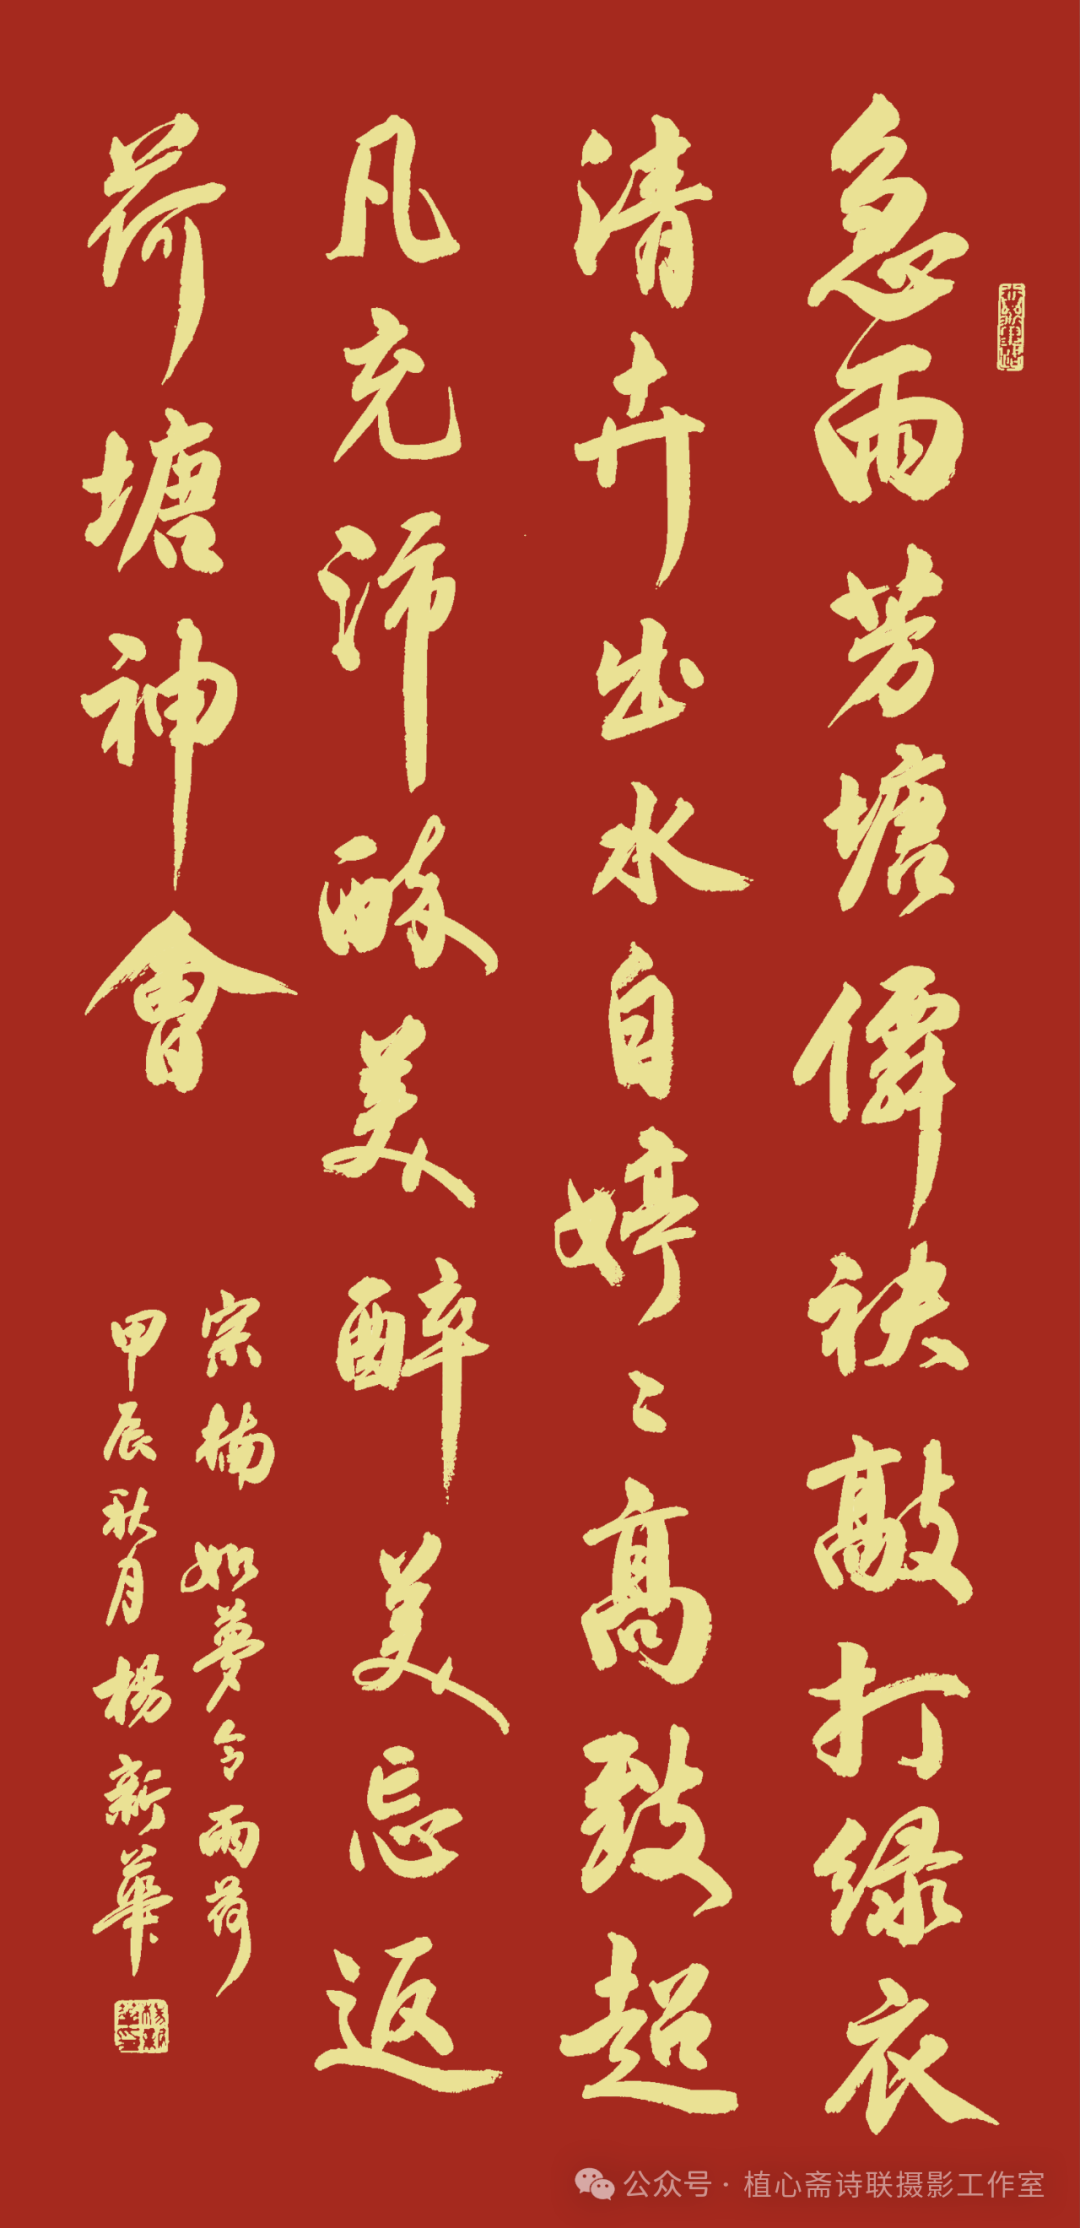 急雨芳塘袂敲打绿衣
清卉出水自婷〻高致超
凡充沛酥美醉美忘返
荷塘神會
宗楠 如夢令 雨荷
甲辰秋月 楊新華
公众号·植心斋诗联摄影工作室